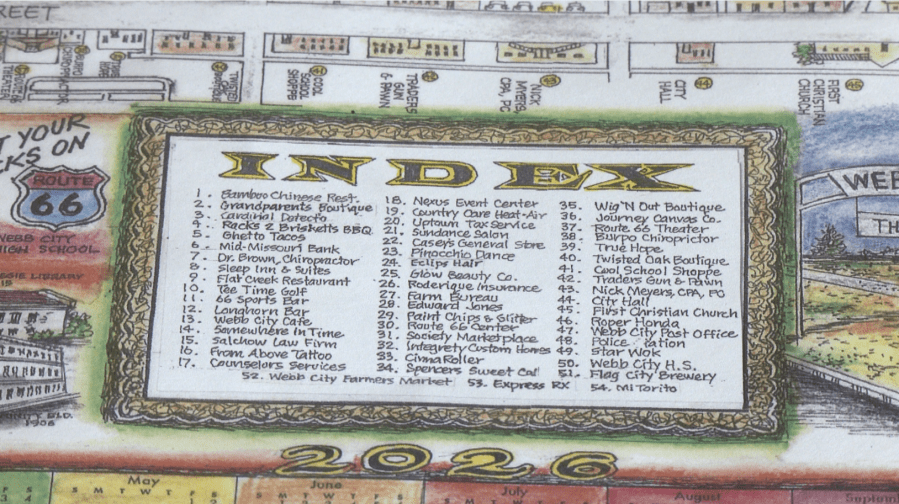 REET
THEATER
ROUTE 66
CHIROPRACTOR
COOL
SCHOOL
SHOPPE
TRADERS
GUN
& PAWN
NICK
MYERS,
CPA, PC
CITY
HALL
FIRST
CHRISTIAN
CHURCH
T YOUR
CKS ON
ROUTE
66
WEBB CITY
HIGH SCHOOL
GIE LIBRARY
WEB
TH
INDEX
1. Bamboo Chinese Rest.
2. Grandparents Boutique
3. Cardinal Detecto
4. Racks 2 Briskets BBQ
5. Ghetto Tacos
6. Mid-Missouri Bank
7. Dr. Brown, Chiropractor
8. Sleep Inn & Suites
9. Flat Creek Restaurant
10. Tee Time Golf
11. 66 Sports Bar
12. Longhorn Bar
13. Webb City Cafe
14. Somewhere In Time
15. Salchow Law Firm
16. From Above Tattoo
17. Counselors Services
18. Nexus Event Center
19. Country Care Heat-Air
20. Uptown Tax Service
21. Sundance Salon
22. Casey's General Store
23. Pinocchio Dance
24. Eclips Hair
25. Glow Beauty Co.
26. Roderique Insurance
27. Farm Bureau
28. Edward Jones
29. Paint Chips & Glitter
30. Route 66 Center
31. Society Marketplace
32. Integrety Custom Homes
33. CinnaRoller
34. Spencers Sweet Cal
35. Wig 'N Out Boutique
36. Journey Canvas Co.
37. Route 66 Theater
38. Burpo Chiroprictor
39. True Hope
40. Twisted Oak Boutique
41. Cool School Shoppe
42. Traders Gun & Pawn
43. Nick Meyers, CPA, PC
44. City Hall
45. First Christian Church
46. Roper Honda
47. Webb City Post Office
48. Police tation
49. Star Wok
50. Webb City H.S.
51. Flag City Brewery
52. Webb City Farmers Market 53. Express RX 54. Mi Torito
BLD.
1906
2026
May
June
July
August
S M T W T F S
S M T W T F S